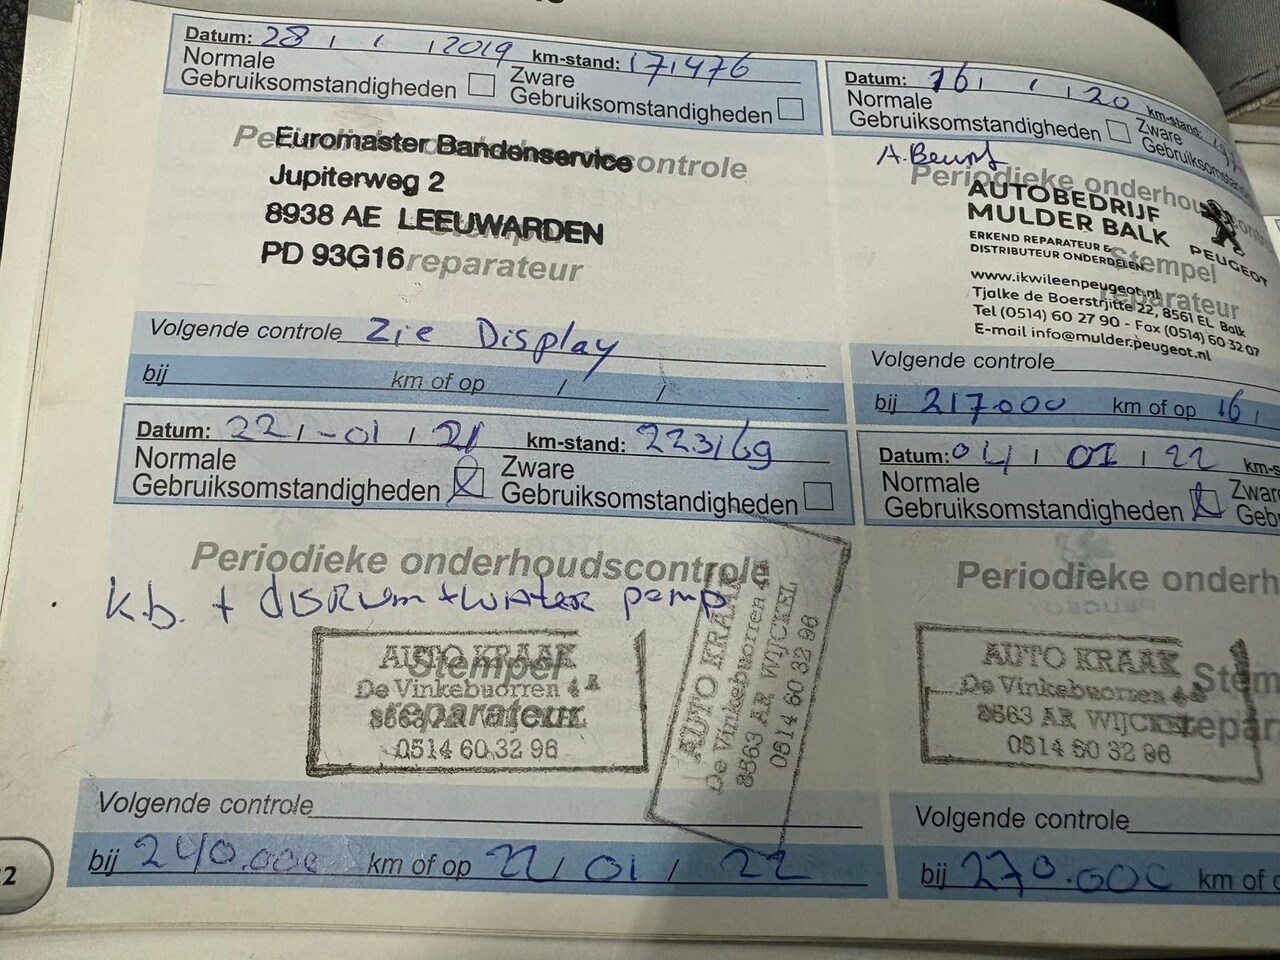 Datum: 28 / 1 / 2019 km-stand: 171476
Normale
Gebruiksomstandigheden
Zware
Gebruiksomstandigheden
Periodieke onderhoudscontrole
Euromaster Bandenservice
Jupiterweg 2
8938 AE LEEUWARDEN
PD 93G16
Stempel
reparateur
Volgende controle Zie Display
bij km of op / /
Datum: 16 / / 20 km-stand:
Normale
Gebruiksomstandigheden
Zware
A. Beurt
Periodieke onderhou
AUTOBEDRIJF
MULDER BALK
PEUGEOT
ERKEND REPARATEUR &
DISTRIBUTEUR ONDERDELEN
Stempel
reparateur
www.ikwileenpeugeot.nl
Tjalke de Boerstrjitte 22, 8561 EL Balk
Tel (0514) 60 27 90 - Fax (0514) 60 32 07
E-mail info@mulder.peugeot.nl
Volgende controle
bij 217.000 km of op 16 /
Datum: 22 / -01 / 21 km-stand: 223169
Normale
Gebruiksomstandigheden
Zware
Gebruiksomstandigheden
Periodieke onderhoudscontrole
k.b. + disRum + water pomp
Stempel
reparateur
AUTO KRAAK
De Vinkebuorren 4A
8563 AR
0514 60 32 96
AUTO KRAAK
De Vinkebuorren 4A
8563 AR WIJCKEL
0514 60 32 96
Volgende controle
bij 240.000 km of op 22 / 01 / 22
Datum: 04 / 01 / 22 km-s
Normale
Gebruiksomstandigheden
Zwar
Geb
Periodieke onderh
AUTO KRAAK
De Vinkebuorren 4A
8563 AR WIJCKEL
0514 60 32 96
Stem
repar
Volgende controle
bij 270.000 km of o
2